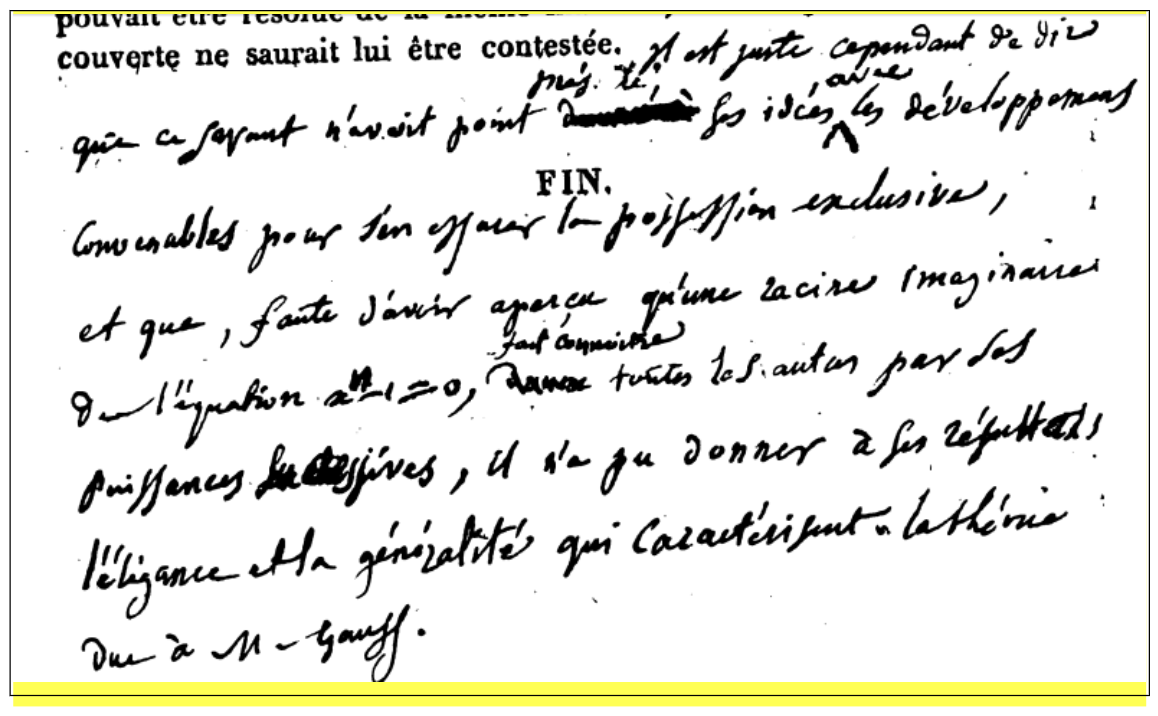 pouvait être résolue de la même
couverte ne saurait lui être contestée. Il est juste cependant de dire
présenté avec
que ce savant n'avait point ses idées les développemens
FIN.
Convenables pour s'en assurer la possession exclusive,
et que, faute d'avoir aperçu qu'une racine imaginaire
fait connoitre
De l'équation xⁿ-1=0, donne toutes les autres par ses
puissances successives, il n'a pu donner à ses résultats
l'élégance et la généralité qui Caractérisent la théorie
due à M. Gauss.